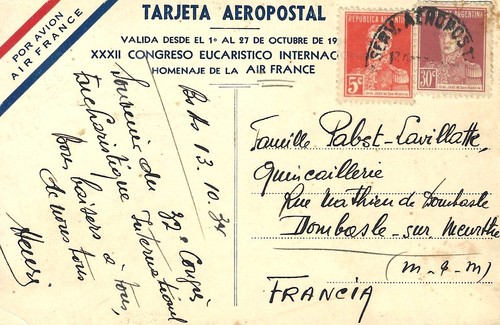 POR AVION
AIR FRANCE
TARJETA AEROPOSTAL
VALIDA DESDE EL 1º AL 27 DE OCTUBRE DE 19
XXXII CONGRESO EUCARISTICO INTERNAC
HOMENAJE DE LA AIR FRANCE
REPUBLICA ARGENTINA
5c
ARGENTINA
30c
SERV. AEROPOST
Bs As 13.10.34
Souvenir du 32e Congrès
Eucharistique International
bons baisers à tous,
de nous tous
Henri
Famille Pabst-Lavillatte,
Quincaillerie
Rue Mathieu de Dombasle
Dombasle-sur Meurthe
(M-&-M)
FRANCIA